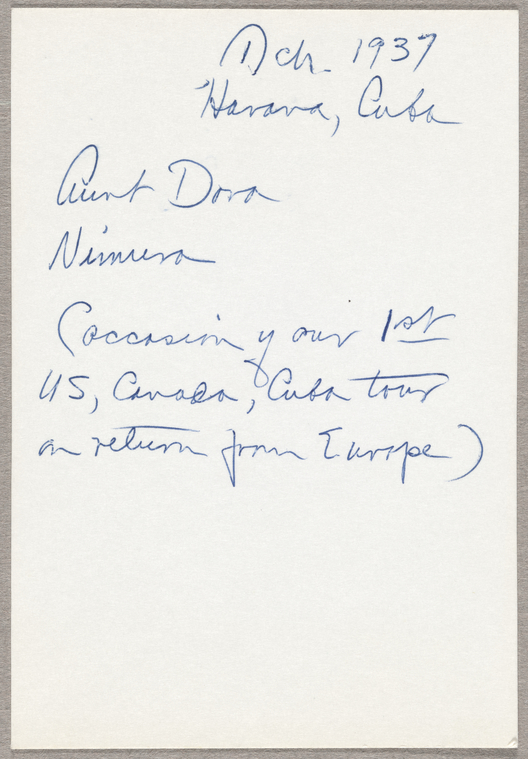 Dcbr 1937
Havana, Cuba
Aunt Dora
Nimura
(occasion of our 1st
US, Canada, Cuba tour
on return from Europe)